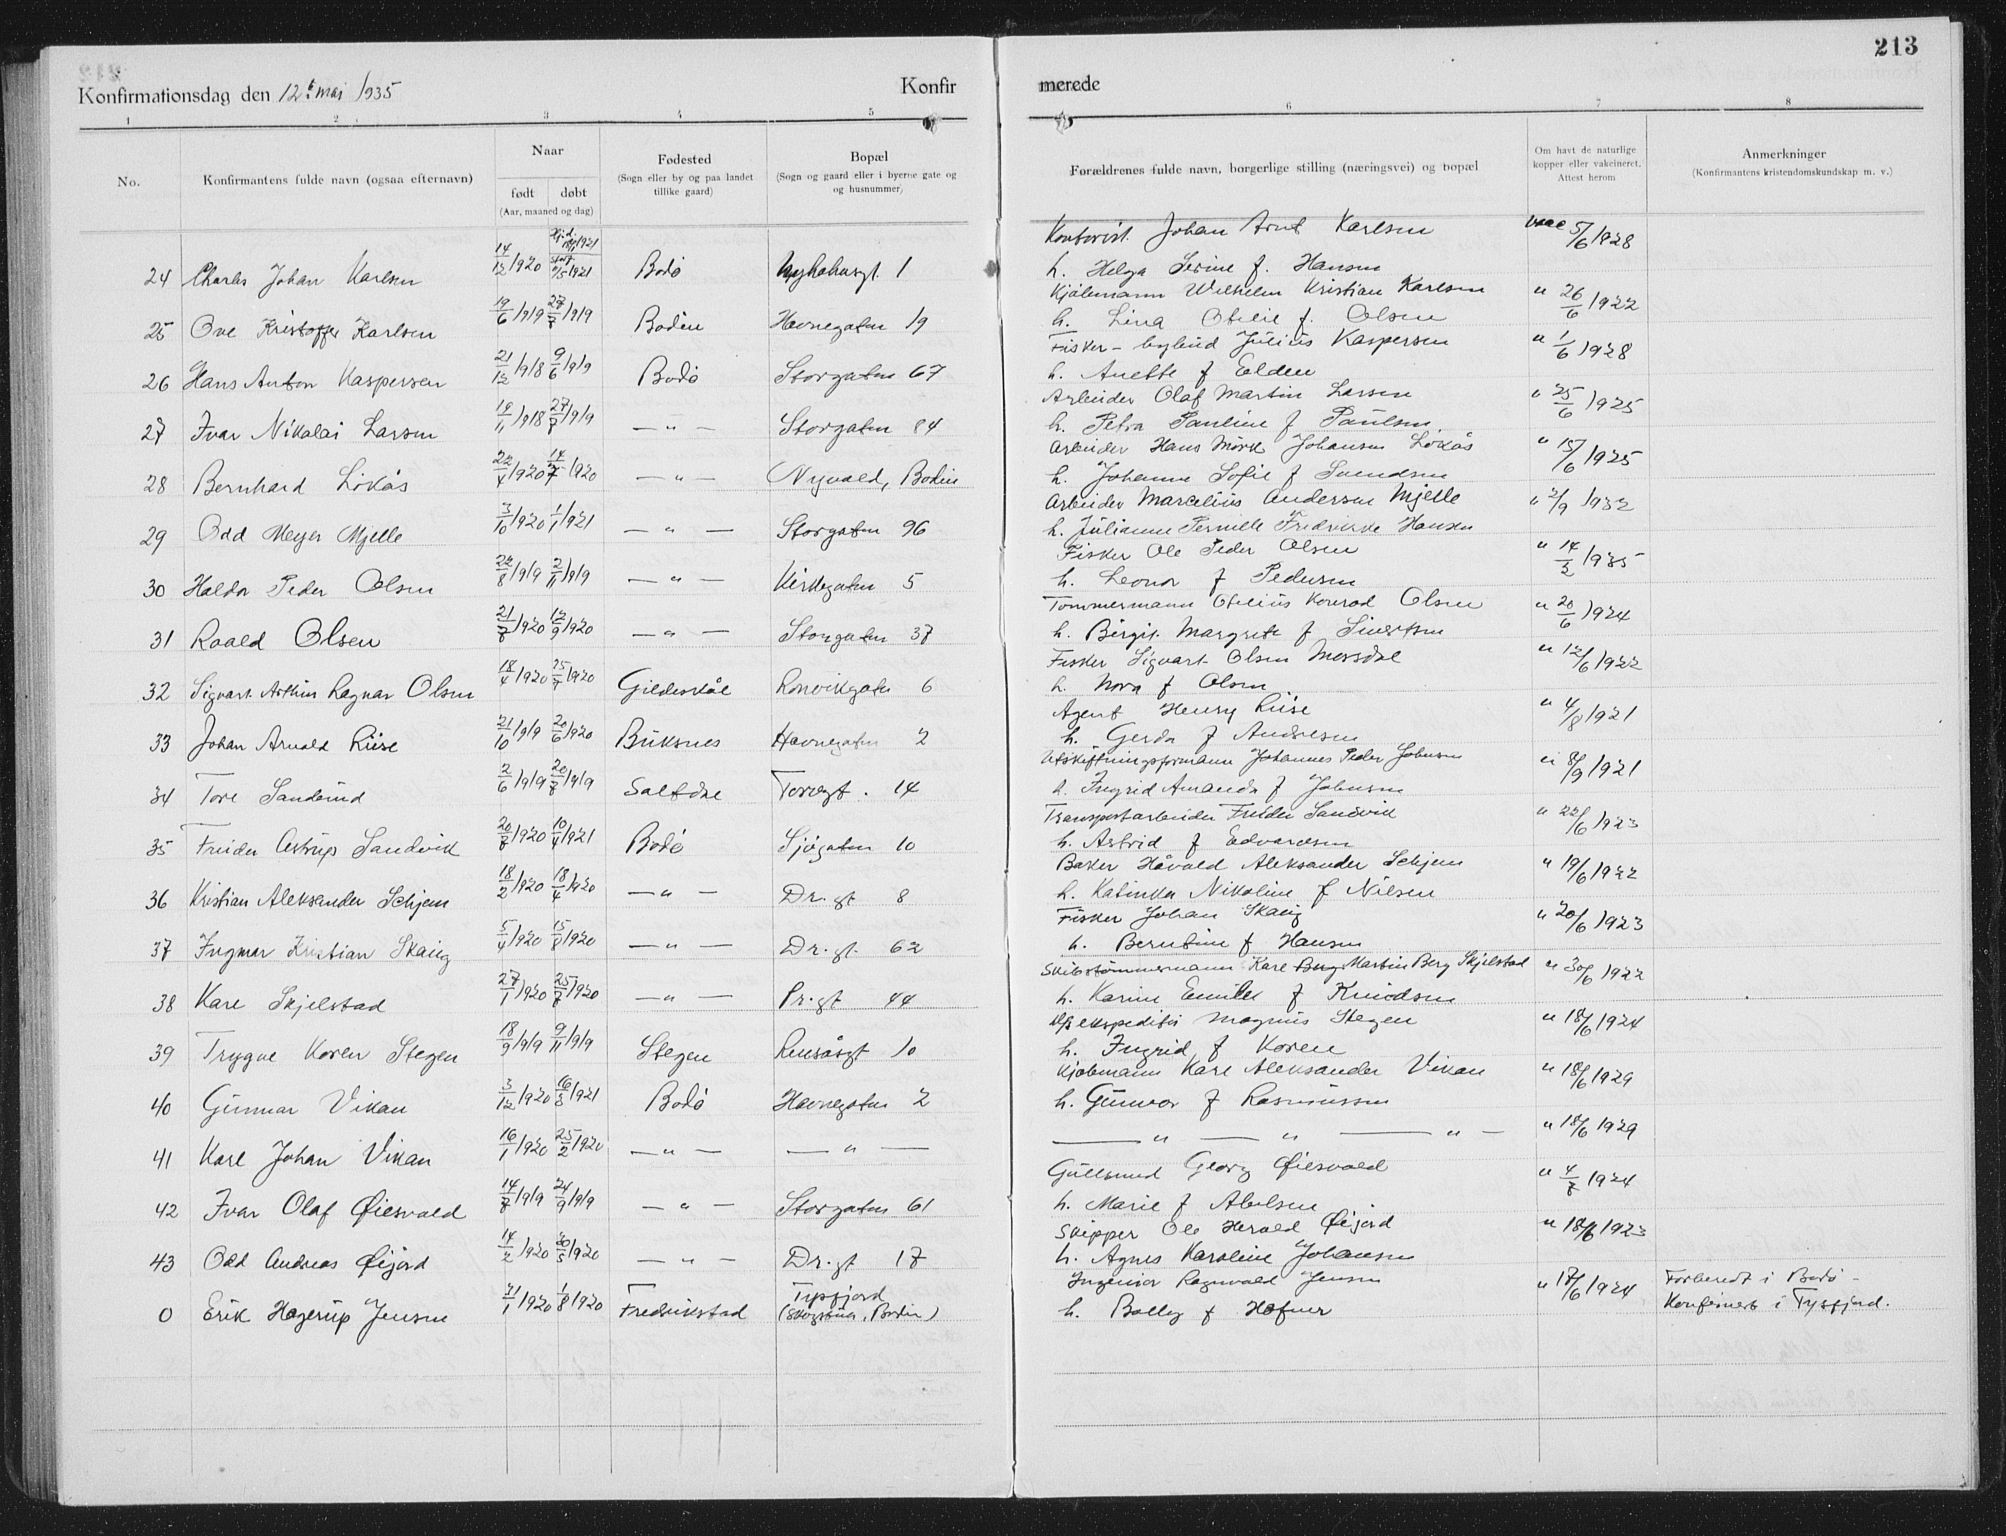 213
Konfirmationsdag den 12te mai 1935
Konfirmerede
1 2 3 4 5 6 7 8
No.
Konfirmantens fulde navn (ogsaa efternavn)
Naar
født døbt
(Aar, maaned og dag)
Fødested
(Sogn eller by og paa landet
tillike gaard)
Bopæl
(Sogn og gaard eller i byerne gate og
og husnummer)
Forældrenes fulde navn, borgerlige stilling (næringsvei) og bopæl
Om havt de naturlige
kopper eller vakcineret.
Attest herom
Anmerkninger
(Konfirmantens kristendomskundskap m. v.)
Kontorist Johan Arnt Karlsen vacc 5/6 1928
24 Charles Johan Karlsen 14/12 1920 1921 Bodø Nyholmsgt 1 h. Helga Serine f. Hansen
Kjøbmann Wilhelm Kristian Karlsen " 26/6 1922
25 Ove Kristoffer Karlsen 19/6 1919 27/7 1919 Bodin Havnegaten 19 h. Lina Otilie f. Olsen
Fisker - bybud Julius Kaspersen " 1/6 1928
26 Hans Anton Kaspersen 21/12 1918 9/6 1919 Bodø Storgaten 67 h. Anette f Elden
Arbeider Olaf Martin Larsen " 25/6 1925
27 Ivar Nikolai Larsen 19/11 1918 27/7 1919 — " — Storgaten 84 h. Petra Pauline f Paulsen
Arbeider Hans Mørk Johansen Løkås " 15/6 1925
28 Bernhard Løkås 22/4 1920 14/7 1920 — " — Nyvold, Bodin h. Johanna Sofie f Svendsen
Arbeider Marcelius Andersen Mjelle " 2/9 1932
29 Odd Meyer Mjelle 3/10 1920 1/1 1921 — " — Storgaten 96 h. Julianne Pernille Fredrikke Hansen
Fisker Ole Peder Olsen " 14/2 1935
30 Haldor Peder Olsen 22/8 1919 2/11 1919 — " — Kirkegaten 5 h. Leonor f Pedersen
Tømmermann Otelius Konrad Olsen " 20/6 1924
31 Roald Olsen 21/7 1920 12/9 1920 — " — Storgaten 37 h. Birgit Margrete f Sivertsen
Fisker Sigvart Olsen Morsdal " 12/6 1922
32 Sigvart Arthur Ragnar Olsen 18/4 1920 25/7 1920 Gildeskål Rønvikgaten 6 h. Nora f Olsen
Agent Henry Riise " 4/8 1921
33 Johan Arnold Riise 21/10 1919 20/6 1920 Buksnes Havnegaten 2 h. Gerda f Andresen
Utskiftningsformann Johannes Peder Johnsen " 8/9 1921
34 Tore Sandmo 2/6 1919 20/7 1919 Saltdal Torvgt. 14 h. Ingrid Amanda f Johnsen
Transportarbeider Freider Sandvik " 22/6 1923
35 Freider Astrup Sandvik 20/8 1920 10/4 1921 Bodø Sjøgaten 10 h. Astrid f Edvardsen
Baker Håvald Aleksander Schjem " 19/6 1922
36 Kristian Aleksander Schjem 18/2 1920 18/4 1920 — " — Dr. gt 8 h. Katinka Nikoline f Nilsen
Fisker Johan Skaug " 20/6 1923
37 Ingmar Kristian Skaug 5/4 1920 15/8 1920 — " — Dr. gt. 62 h. Berntine f Hansen
Skibstømmermann Karl Berg Martin Berg Skjelstad " 30/6 1922
38 Kare Skjelstad 27/1 1920 25/7 1920 — " — Pr. gt 44 h. Karine Emilie f Knudsen
ekspeditør Magnus Stegen " 18/6 1924
39 Trygve Koren Stegen 18/9 1919 9/11 1919 Stegen Rensåsgt 10 h. Ingrid f Koren
Kjøbmann Karl Aleksander Vikan " 18/6 1929
40 Gunnar Vikan 3/12 1920 16/5 1921 Bodø Havnegaten 2 h. Gunvor f Rasmussen
41 Karl Johan Vikan 16/1 1920 25/2 1920 — " — — " — — " — " — " — " 18/6 1929
Gullsmed Georg Øiesvold " 4/7 1924
42 Ivar Olaf Øiesvold 14/7 1919 24/9 1919 — " — Storgaten 61 h. Marie f Abelsen
Skipper Ole Herald Øijord " 18/6 1923
43 Odd Andreas Øijord 14/2 1920 30/5 1920 — " — Dr. gt 17 h. Agnes Karoline Johansen
Ingeniør Ragnvald Jensen " 17/6 1924 Forberedt i Bodø -
0 Erik Hagerup Jensen 21/1 1920 1/8 1920 Fredrikstad Tysfjord (Skogstua, Bodin) h. Bolly f Hofner Konfirmert i Tysfjord.